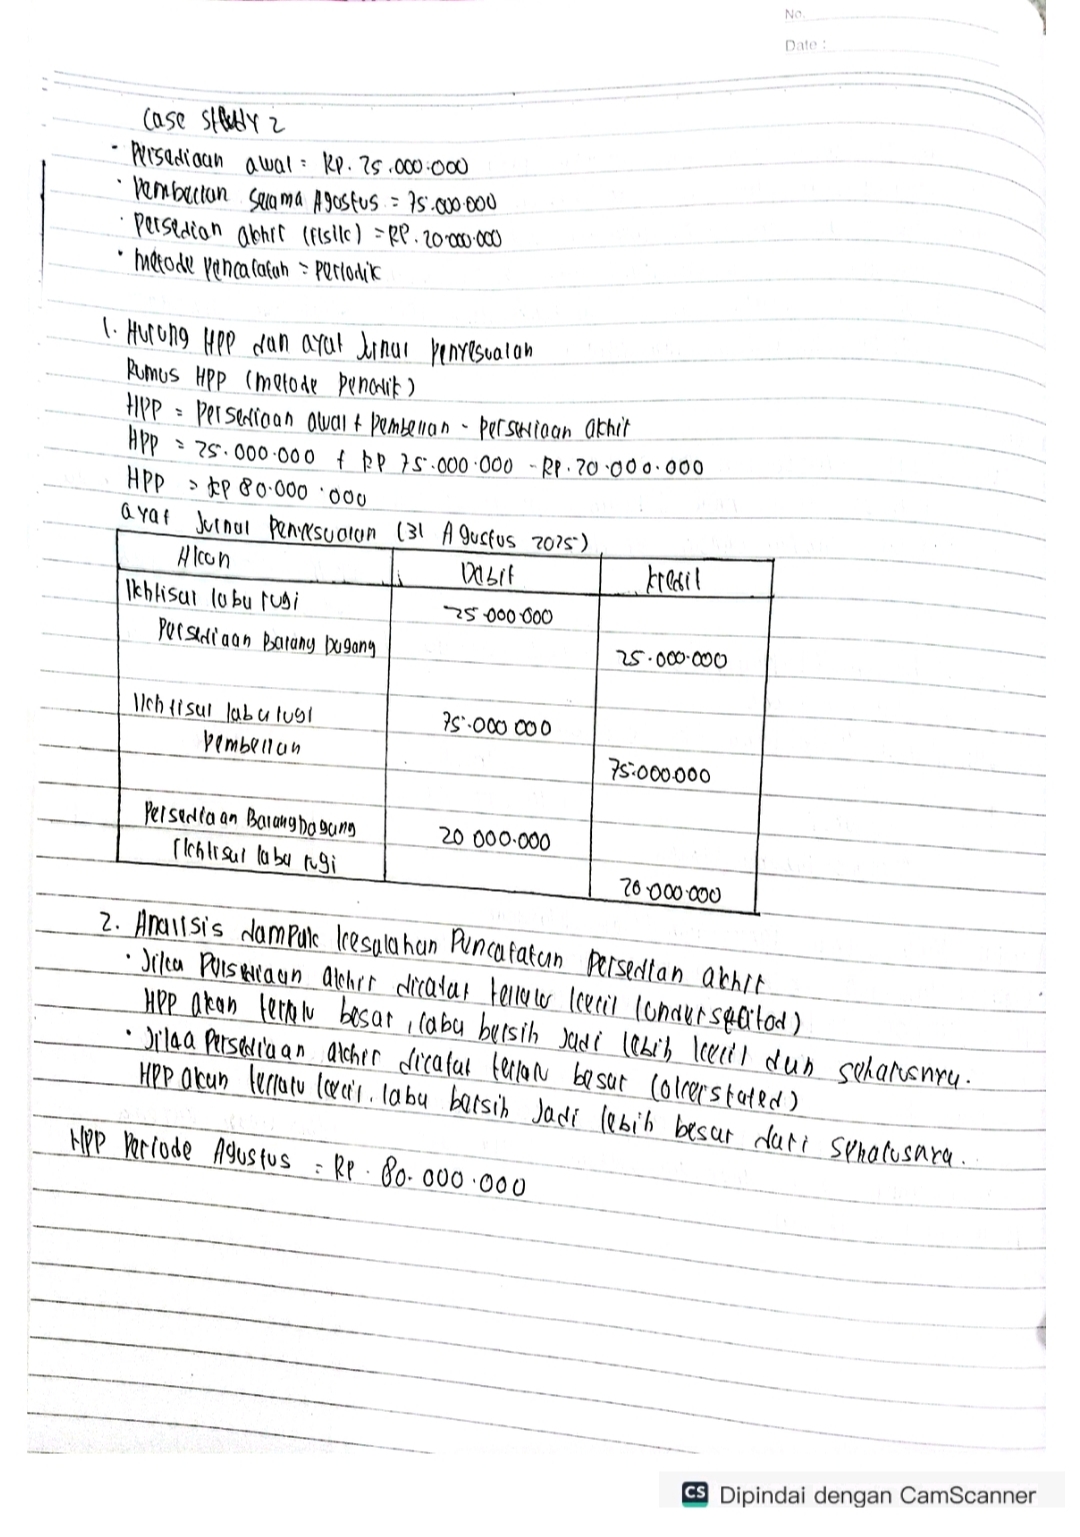 No.
Date :
Case Study 2
· Persediaan awal = Rp. 25.000.000
· Pembelian selama Agustus = 75.000.000
· Persedian akhir (fisik) = RP. 20.000.000
· metode pencatatan = Periodik
1. Hitung HPP dan ayat Jurnal penyesuaian
Rumus HPP (metode Periodik)
HPP = Persediaan awal + Pembelian - Persediaan akhir
HPP = 25.000.000 + RP 75.000.000 - RP. 20.000.000
HPP = RP 80.000.000
ayat Jurnal Penyesuaian (31 Agustus 2025)
Akun Debit Kredit
Ikhtisar laba rugi 25.000.000
Persediaan Barang Dagang 25.000.000
Ikhtisar laba rugi 75.000.000
Pembelian 75.000.000
Persediaan Barang Dagang 20.000.000
Ikhtisar laba rugi 20.000.000
2. Analisis dampak kesalahan Pencatatan Persedian akhir
· Jika Persediaan akhir dicatat terlalu kecil (understated)
HPP akan terlalu besar, laba bersih Jadi lebih kecil dari seharusnya.
· Jika Persediaan akhir dicatat terlalu besar (overstated)
HPP akan terlalu kecil. laba bersih Jadi lebih besar dari seharusnya.
HPP Periode Agustus = RP. 80.000.000
CS Dipindai dengan CamScanner